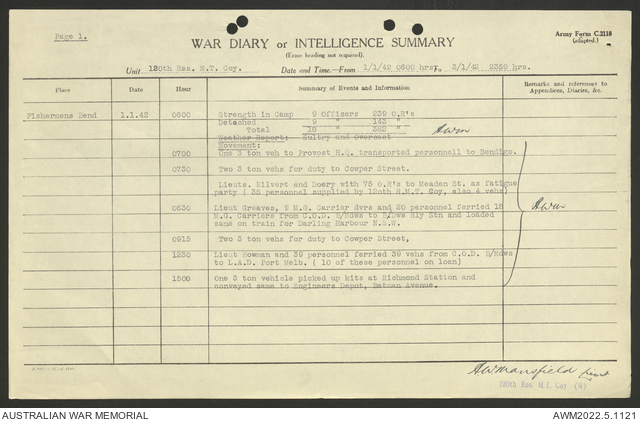 Page 1.
Army Form C.2118
(adapted.)
WAR DIARY or INTELLIGENCE SUMMARY
(Erase heading not required).
Unit 120th Res. M.T. Coy. Date and Time—From 1/1/42 0600 hrs To 3/1/42 2359 hrs.
Place Date Hour Summary of Events and Information Remarks and references to
Appendices, Diaries, &c.
Fishermens Bend 1.1.42 0600 Strength in Camp 9 Officers 239 O.R's
Detached 9 " 143 "
Total 18 " 382 "
Weather Report: Sultry and Overcast
Movement:
0700 One 3 ton veh to Provost H.Q. transported personnell to Bendigo.
0730 Two 3 ton vehs for duty to Cowper Street.
Lieuts. Kilvert and Doery with 75 O.R's to Meaden St. as fatigue
party ( 35 personnel supplied by 12oth R.M.T. Coy, also 4 vehs)
0630 Lieut Greaves, 9 M.G. Carrier dvrs and 20 personnel ferried 18
M.G. Carriers from C.O.D. B/Mdws to B/Dws Rly Stn and loaded
same on train for Darling Harbour N.S.W.
0915 Two 3 ton vehs for duty to Cowper Street,
1230 Lieut Bowman and 39 personnel ferried 39 vehs from C.O.D. B/Mdws
to L.A.D. Port Melb. ( 10 of these personnel on loan)
1500 One 3 ton vehicle picked up kits at Richmond Station and
conveyed same to Engineers Depot, Batman Avenue.
AWMansfield
120th Res. M.T. Coy (M)
AUSTRALIAN WAR MEMORIAL AWM2022.5.1121